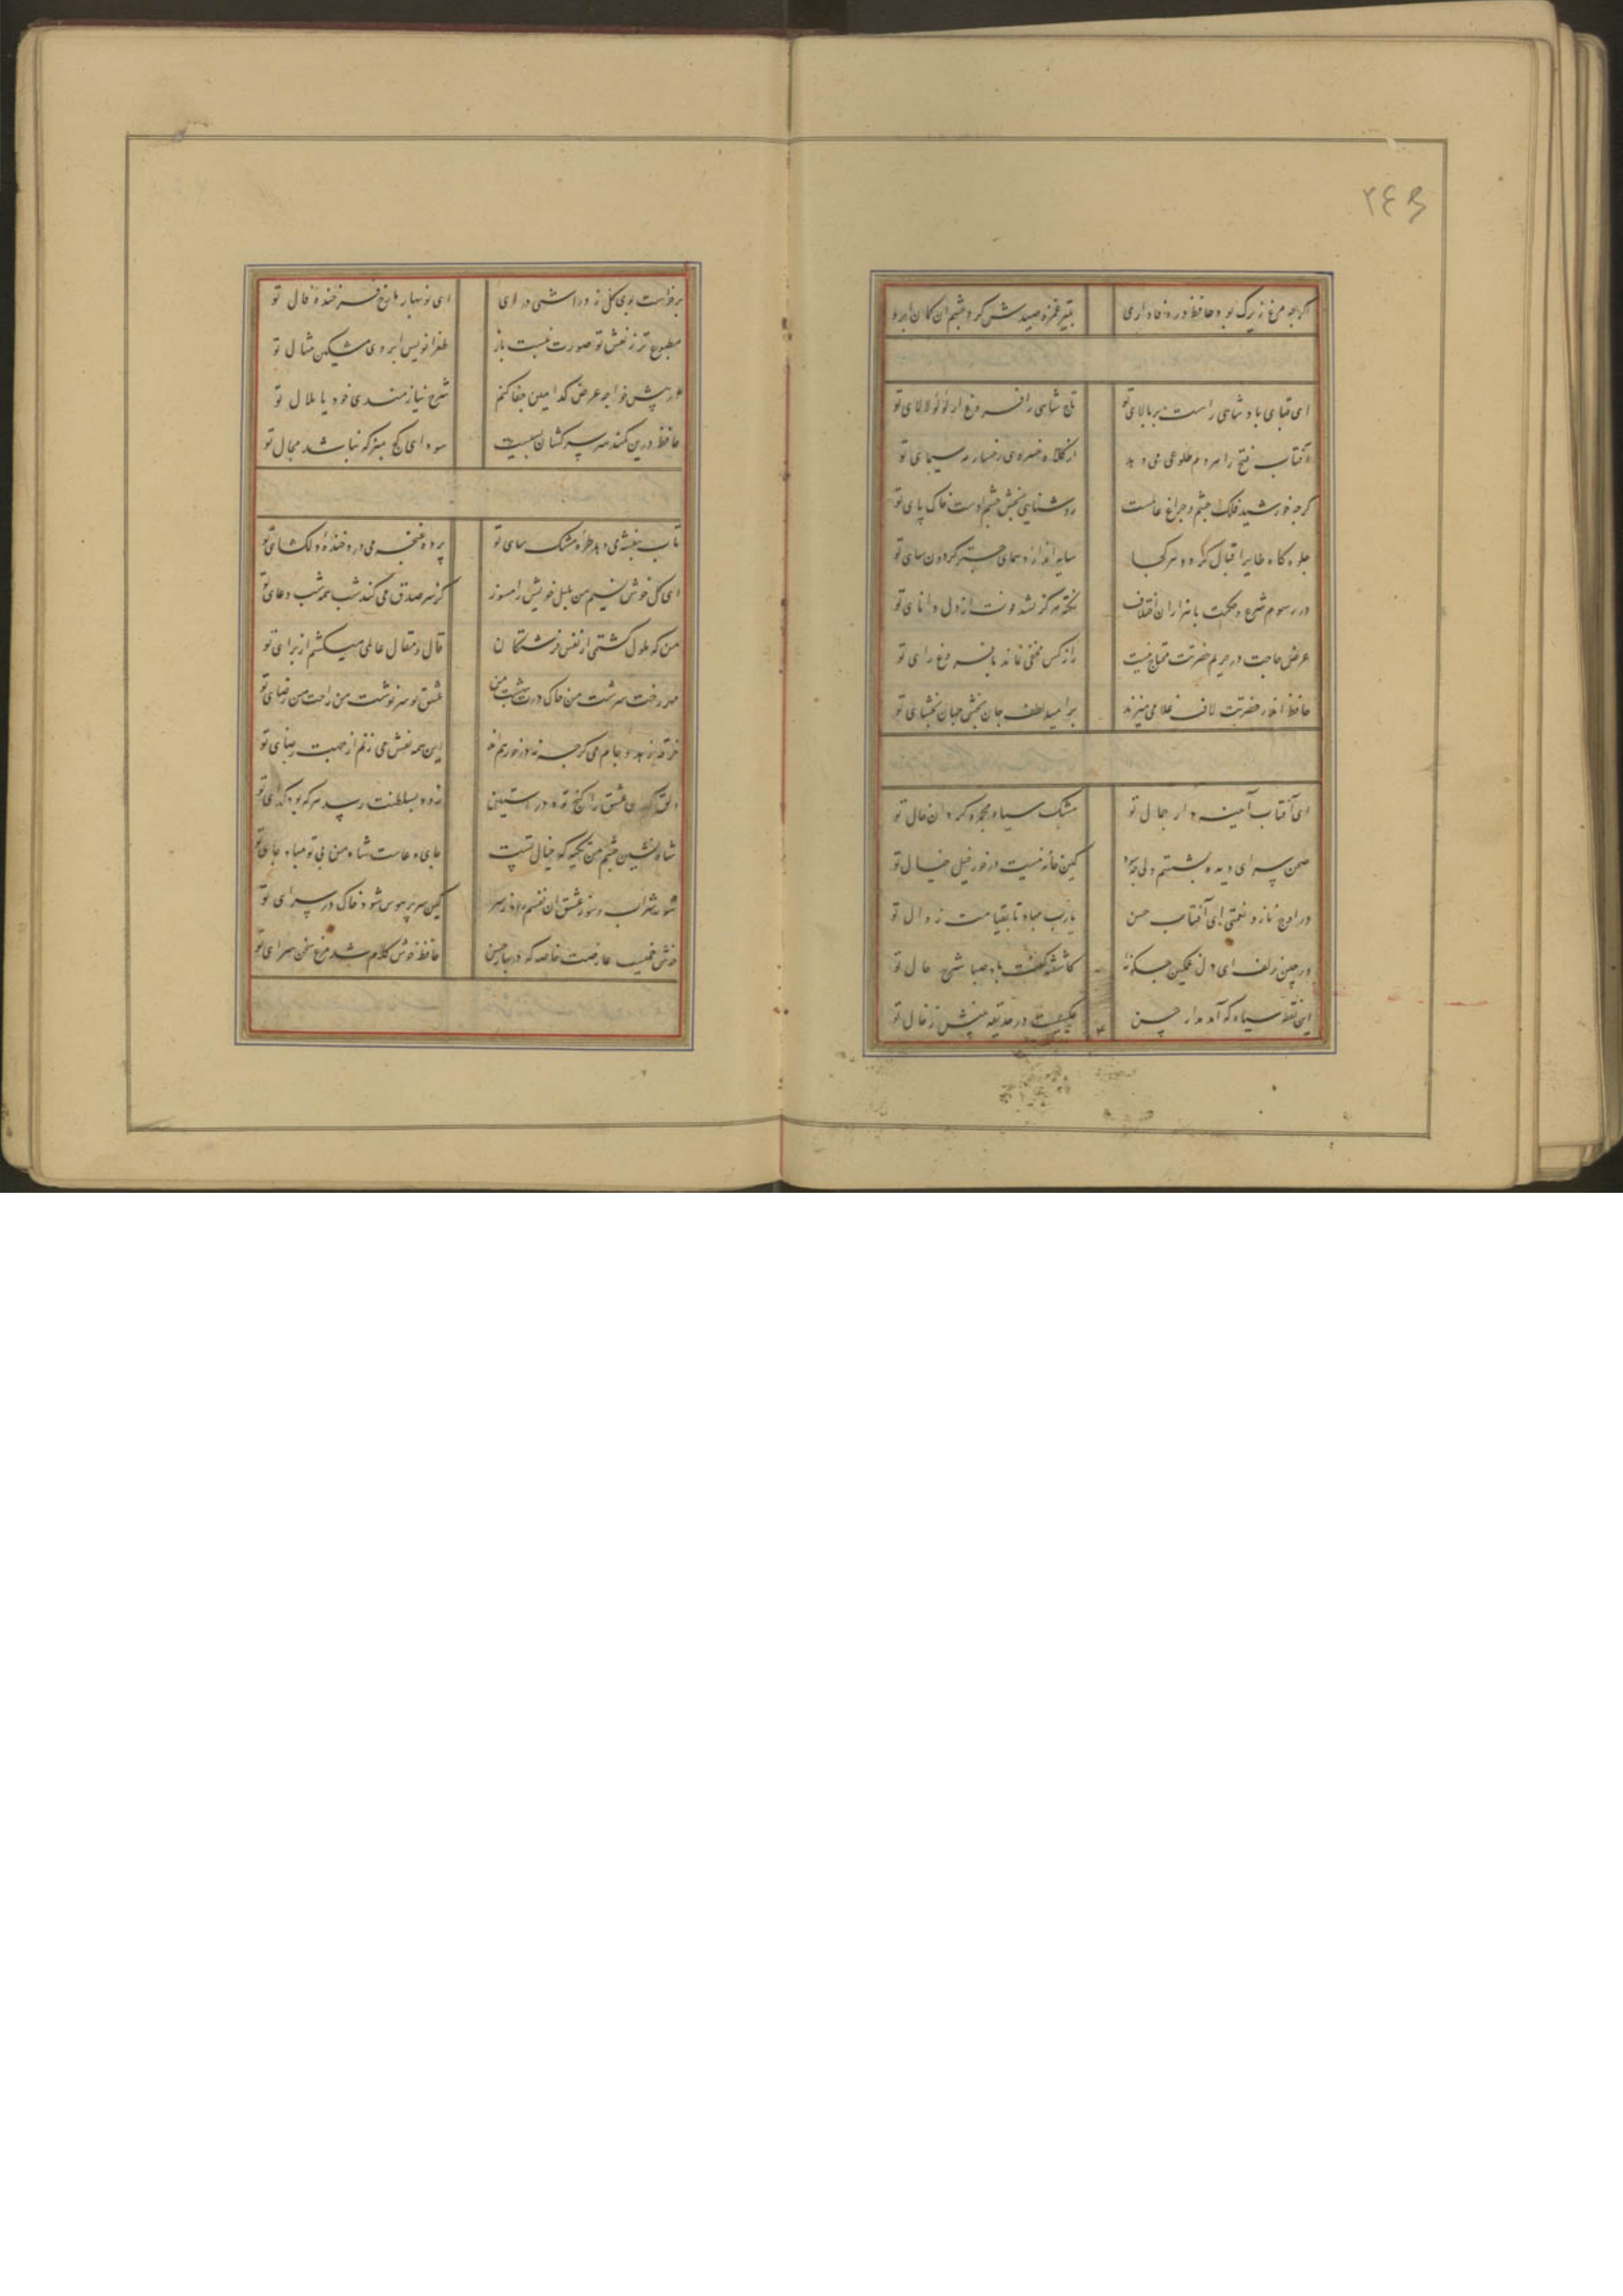 ۲۴۳
اگرچه مرغ زیرک بود حافظ در وفاداری بتیر غمزه صیدش کرد چشم آن کمان ابرو
ای قبای پادشاهی راست بر بالای تو تاج شاهی را فروغ از لؤلؤ لالای تو
آفتاب فتح را هر دم طلوعی می دهد از کلاه خسروی رخسار مه سیمای تو
گرچه خورشید فلک چشم و چراغ عالمست روشنایی بخش چشم اوست خاک پای تو
جلوه گاه طایر اقبال گردد هر کجا سایه اندازد همای چتر گردون سای تو
در رسوم شرع و حکمت با هزاران اختلاف نکته هرگز نشد فوت از دل دانای تو
عرض حاجت در حریم حضرتت محتاج نیست راز کس مخفی نماند با فروغ رای تو
حافظ اندر حضرتت لاف غلامی میزند بر امید لطف جان بخش جهان بخشای تو
ای آفتاب آینه دار جمال تو مشک سیاه مجمره گردان خال تو
صحن سرای دیده بشستم ولی چه سود کین خانه نیست در خور خیل خیال تو
در اوج ناز و نعمتی ای آفتاب حسن یا رب مباد تا بقیامت زوال تو
در چین زلف ای دل مسکین چگونه کاشفته گفت باد صبا شرح حال تو
این نقطه سیاه که آمد مدار حسن عکسیست در حدیقه بینش ز خال تو
برخاست بوی گل ز در آشتی درای ای نوبهار ما رخ فرخنده فال تو
مطبوع تر ز نقش تو صورت نبست باز طغرا نویس ابروی مشکین مثال تو
در پیش خواجه عرض کدامین جفا کنم شرح نیازمندی خود یا ملال تو
حافظ درین کمند سر سرکشان بسیست سودای کج مپز که نباشد مجال تو
تاب بنفشه می دهد طره مشک سای تو پرده غنچه می درد خنده دلگشای تو
ای گل خوش نسیم من بلبل خویش را مسوز کز سر صدق می کند شب همه شب دعای تو
من که ملول گشتمی از نفس فرشتگان قال و مقال عالمی میکشم از برای تو
مهر رخت سرشت من خاک درت بهشت من عشق تو سرنوشت من راحت من رضای تو
خرقه زهد و جام می گرچه نه در خور هم اند این همه نقش می زنم از جهت رضای تو
دلق گدای عشق را گنج بود در آستین زود بسلطنت رسد هر که بود گدای تو
شاه نشین چشم من تکیه گه خیال تست جای دعاست شاه من بی تو مباد جای تو
شور شراب و سوز عشق آن نفسم رود ز سر کین سر پر هوس شود خاک در سرای تو
خوش چمنیست عارضت خاصه که در بهار حسن حافظ خوش کلام شد مرغ سخن سرای تو